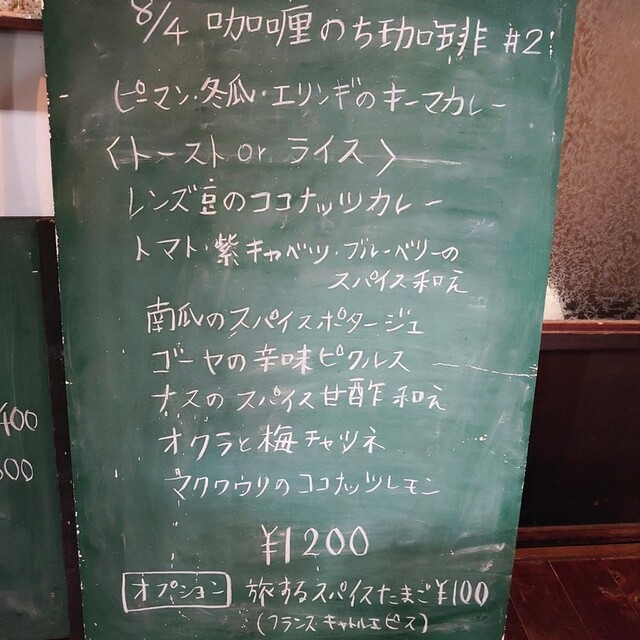 8/4 咖喱のち珈琲 #2
ピーマン・冬瓜・エリンギのキーマカレー
〈トースト or ライス〉
レンズ豆のココナッツカレー
トマト・紫キャベツ・ブルーベリーの
スパイス和え
南瓜のスパイスポタージュ
ゴーヤの辛味ピクルス
ナスのスパイス甘酢和え
オクラと梅チャツネ
マクワウリのココナッツレモン
¥1200
オプション 旅するスパイスたまご ¥100
(フランス キャトルエピス)
400